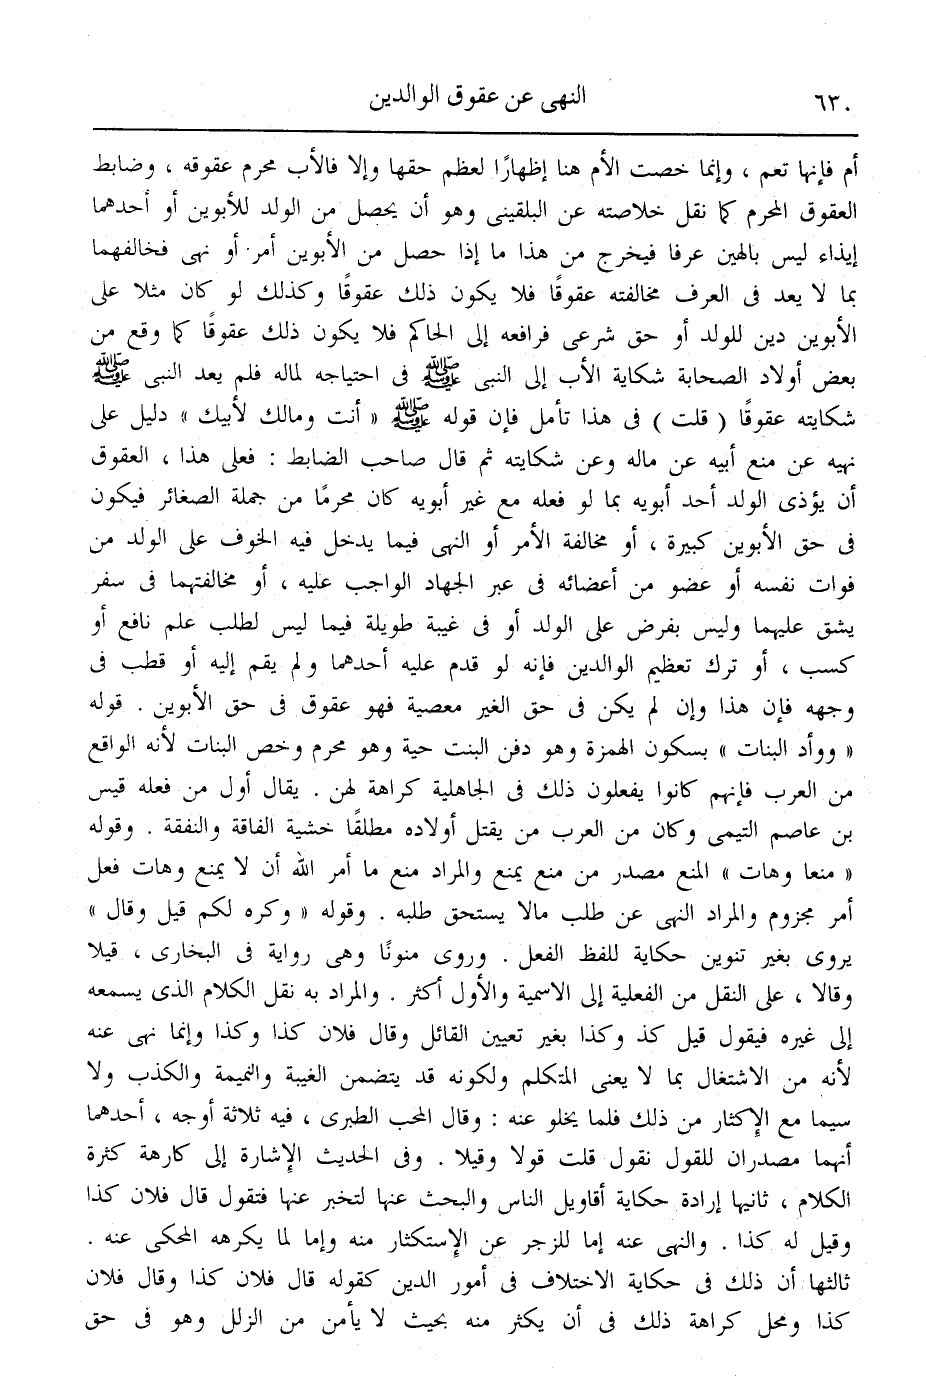 ٦٣٠ النهى عن عقوق الوالدين
أم فإنها تعم ، وإنما خصت الأم هنا إظهارًا لعظم حقها وإلا فالأب محرم عقوقه ، وضابط
العقوق المحرم كما نقل خلاصته عن البلقينى وهو أن يحصل من الولد للأبوين أو أحدهما
إيذاء ليس بالهين عرفا فيخرج من هذا ما إذا حصل من الأبوين أمر أو نهى فخالفهما
بما لا يعد فى العرف مخالفته عقوقًا فلا يكون ذلك عقوقًا وكذلك لو كان مثلا على
الأبوين دين للولد أو حق شرعى فرافعه إلى الحاكم فلا يكون ذلك عقوقًا كما وقع من
بعض أولاد الصحابة شكاية الأب إلى النبى ﷺ فى احتياجه لماله فلم يعد النبى ﷺ
شكايته عقوقًا ( قلت ) فى هذا تأمل فإن قوله ﷺ « أنت ومالك لأبيك » دليل على
نهيه عن منع أبيه عن ماله وعن شكايته ثم قال صاحب الضابط : فعلى هذا ، العقوق
أن يؤذى الولد أحد أبويه بما لو فعله مع غير أبويه كان محرمًا من جملة الصغائر فيكون
فى حق الأبوين كبيرة ، أو مخالفة الأمر أو النهى فيما يدخل فيه الخوف على الولد من
فوات نفسه أو عضو من أعضائه فى عبر الجهاد الواجب عليه ، أو مخالفتهما فى سفر
يشق عليهما وليس بفرض على الولد أو فى غيبة طويلة فيما ليس لطلب علم نافع أو
كسب ، أو ترك تعظيم الوالدين فإنه لو قدم عليه أحدهما ولم يقم إليه أو قطب فى
وجهه فإن هذا وإن لم يكن فى حق الغير معصية فهو عقوق فى حق الأبوين . قوله
« ووأد البنات » بسكون الهمزة وهو دفن البنت حية وهو محرم وخص البنات لأنه الواقع
من العرب فإنهم كانوا يفعلون ذلك فى الجاهلية كراهة لهن . يقال أول من فعله قيس
بن عاصم التيمى وكان من العرب من يقتل أولاده مطلقًا خشية الفاقة والنفقة . وقوله
« منعا وهات » المنع مصدر من منع يمنع والمراد منع ما أمر الله أن لا يمنع وهات فعل
أمر مجزوم والمراد النهى عن طلب مالا يستحق طلبه . وقوله « وكره لكم قيل وقال »
يروى بغير تنوين حكاية للفظ الفعل . وروى منونًا وهى رواية فى البخارى ، قيلا
وقالا ، على النقل من الفعلية إلى الاسمية والأول أكثر . والمراد به نقل الكلام الذى يسمعه
إلى غيره فيقول قيل كذ وكذا بغير تعيين القائل وقال فلان كذا وكذا وإنما نهى عنه
لأنه من الاشتغال بما لا يعنى المتكلم ولكونه قد يتضمن الغيبة والنميمة والكذب ولا
سيما مع الإكثار من ذلك فلما يخلو عنه : وقال المحب الطبرى ، فيه ثلاثة أوجه ، أحدهما
أنهما مصدران للقول نقول قلت قولا وقيلا . وفى الحديث الإشارة إلى كارهة كثرة
الكلام ، ثانيها إرادة حكاية أقاويل الناس والبحث عنها لتخبر عنها فتقول قال فلان كذا
وقيل له كذا . والنهى عنه إما للزجر عن الإستكثار منه وإما لما يكرهه المحكى عنه .
ثالثها أن ذلك فى حكاية الاختلاف فى أمور الدين كقوله قال فلان كذا وقال فلان
كذا ومحل كراهة ذلك فى أن يكثر منه بحيث لا يأمن من الزلل وهو فى حق